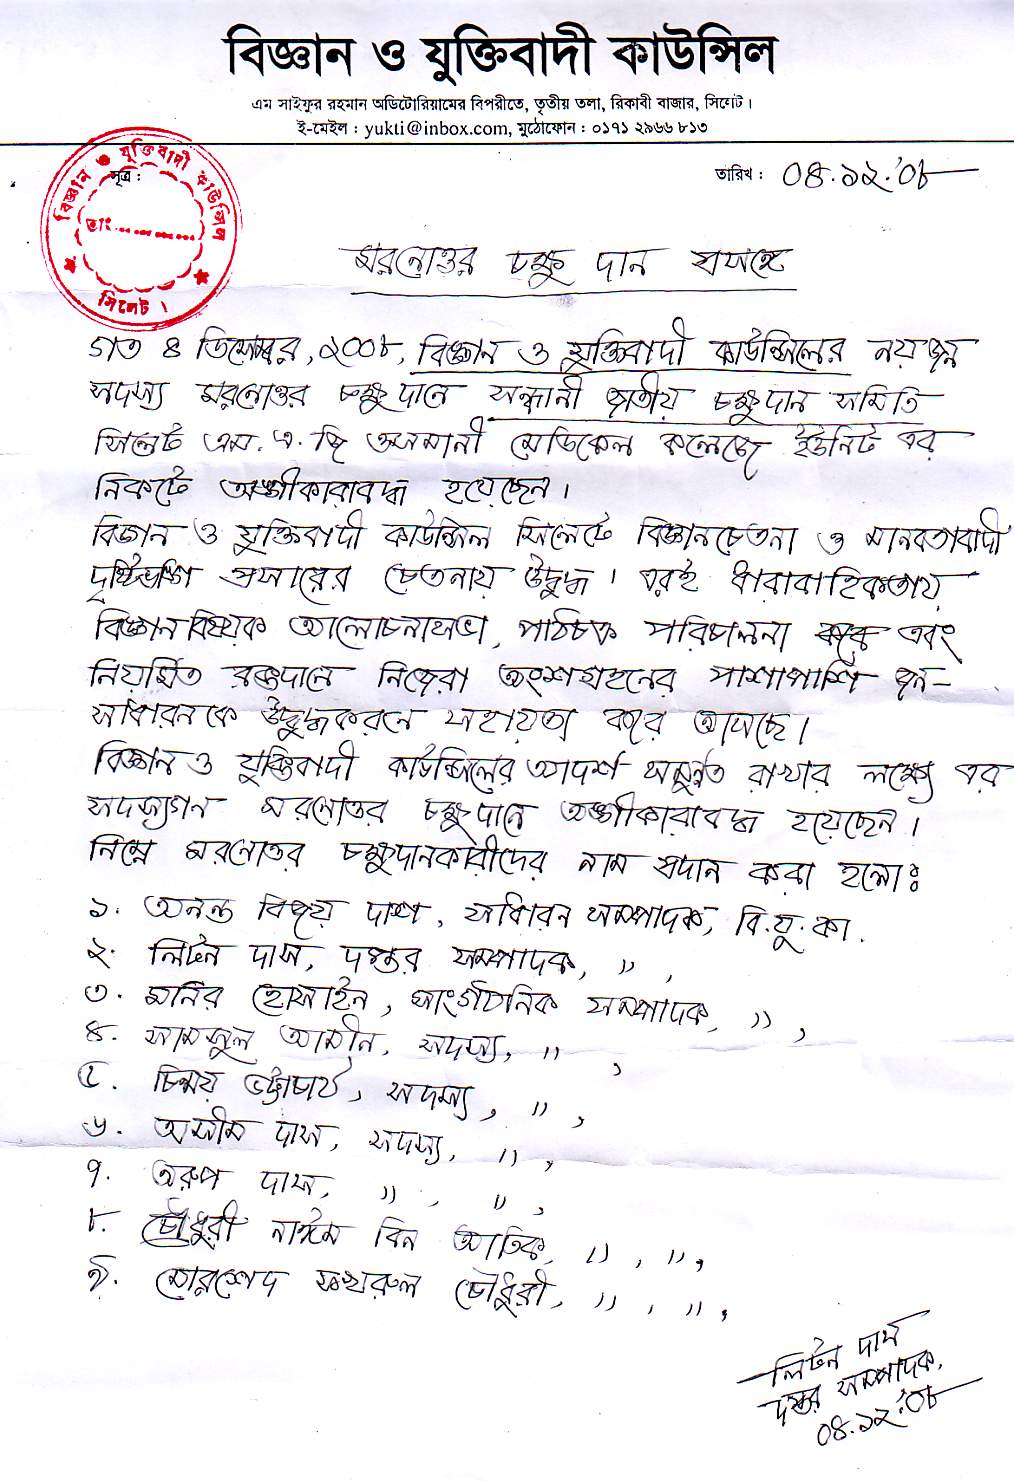 বিজ্ঞান ও যুক্তিবাদী কাউন্সিল
এম সাইফুর রহমান অডিটোরিয়ামের বিপরীতে, তৃতীয় তলা, রিকাবী বাজার, সিলেট।
ই-মেইল : yukti@inbox.com, মুঠোফোন : ০১৭১ ২৯৬৬ ৮১৩
বিজ্ঞান ও যুক্তিবাদী কাউন্সিল
সূত্র :
তাং..............
সিলেট।
তারিখ : ০৪.১২.'০৮
মরনোত্তর চক্ষু দান প্রসঙ্গে
গত ৪ ডিসেম্বর, ২০০৮, বিজ্ঞান ও যুক্তিবাদী কাউন্সিলের নয়জন
সদস্য মরনোত্তর চক্ষুদানে সন্ধানী জাতীয় চক্ষুদান সমিতি
সিলেট এম. এ. জি ওসমানী মেডিকেল কলেজে ইউনিট এর
নিকটে অঙ্গীকারাবদ্ধ হয়েছেন।
বিজ্ঞান ও যুক্তিবাদী কাউন্সিল সিলেটে বিজ্ঞানচেতনা ও মানবতাবাদী
দৃষ্টিভঙ্গি প্রসারের চেতনায় উদ্বুদ্ধ। এরই ধারাবাহিকতায়
বিজ্ঞান বিষয়ক আলোচনাসভা, পাঠচক্র পরিচালনা করে এবং
নিয়মিত রক্তদানে নিজেরা অংশগ্রহনের পাশাপাশি জন-
সাধারনকে উদ্বুদ্ধকরনে সহায়তা করে আসছে।
বিজ্ঞান ও যুক্তিবাদী কাউন্সিলের আদর্শ সমুন্নত রাখার লক্ষ্যে এর
সদস্যগন মরনোত্তর চক্ষুদানে অঙ্গীকারাবদ্ধ হয়েছেন।
নিম্নে মরনোত্তর চক্ষুদানকারীদের নাম প্রদান করা হলোঃ
১. অনন্ত বিজয় দাশ, সাধারন সম্পাদক, বি.যু.কা.
২. লিটন দাস, দপ্তর সম্পাদক, ,, ,
৩. মনির হোসাইন, সাংগঠনিক সম্পাদক, ,, ,
৪. সামসুল আমীন, সদস্য, ,, ,
৫. চিন্ময় ভট্টাচার্য, সদস্য, ,, ,
৬. অসীম দাস, সদস্য, ,, ,
৭. অরুপ দাস, ,, , ,, ,
৮. চৌধুরী নাঈম বিন আতিক, ,, , ,, ,
৯. মোরশেদ ফখরুল চৌধুরী, ,, , ,, ,
লিটন দাস
দপ্তর সম্পাদক,
০৪.১২.'০৮